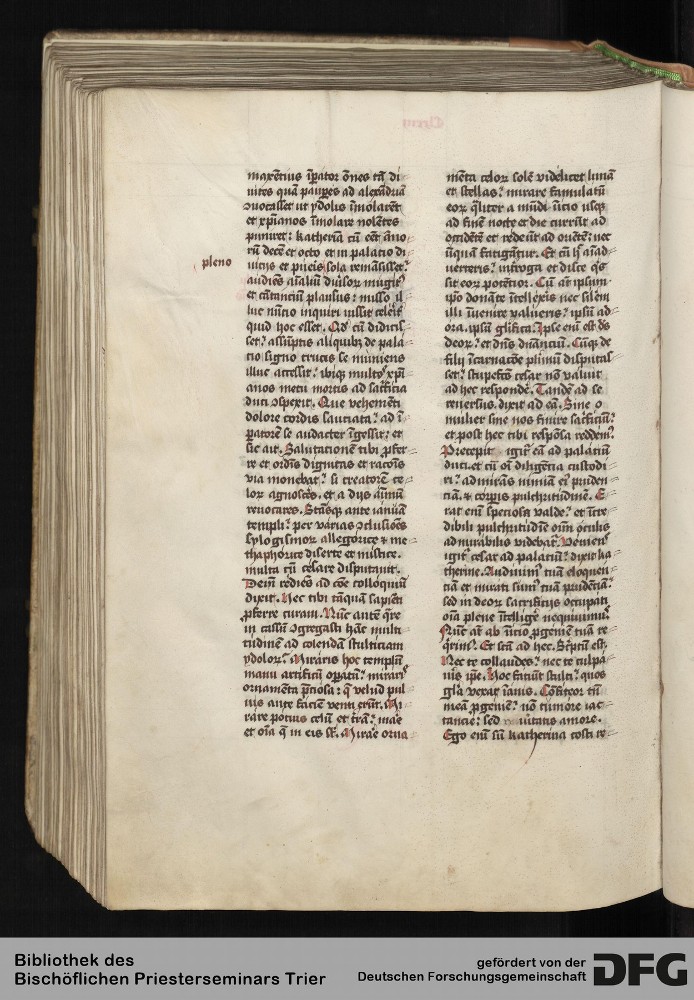 maxētius īꝑator oēs tā di
uites quā pauꝑes ad alexādriā
ↄuocasset ut ydolis īmolarēt
et xp̄ianos īmolare nolētes
puniret: katherīa cū eēt āno
rū decē et octo et in palacio di
pleno
uicijs et pueis sola remāsisset?
audiēs aīaliū diuersorum mugitus
et cātanciū plausus: misso il
luc nūcio inquiri iussit celeriter
quid hoc esset. Qd̄ cū didicis
set? assūptis aliquibꝫ de pala
cio signo crucis se muniens
illuc accessit? ibiqꝫ multos xp̄i
anos metu mortis ad sacrificia
duci ↄspexit. Que vehemēti
dolore cordis sauciata? ad ī
ꝑatorē se audacter īgessit: et
sic ait. Salutacionē tibi ꝓfer
re et ordīs dignitas et racōis
via monebat? si creatorē ce
lorum agnoscēs. et a dijs aīmū
reuocares. Stāsqꝫ ante ianuā
templi? per varias ↄclusiōes
sylogismorum allegorice et me
thaphorice diserte et mistice.
multa cū cesare disputauit.
Deīn rediēs ad cōe colloquiū
dixit. Hec tibi tāquā sapiēti
ꝓferre curam. Nūc autē qre
in cassū ↄgregasti hāc multi
tudinē ad colendā stulticiam
ydolorum? Miraris hoc templū
manu artificū opatū? miraris
ornamēta p̄ciosa: q̄ velud pul
uis ante faciē venti erūt. Mi
rare potius celū et trā? mare
et oīa q̄ in eis st̄. Mirare orna
mēta celorum solē videlicet lunā
et stellas? mirare famulatū
eorum qliter a mūdi īicio usqꝫ
ad finē nocte et die currūt ad
occidētē et redeūt ad oriētē: nec
ūquā fatigātur. Et cū hec aīad
uerteris? īterroga et disce qs
sit eorum potētior. Cū autem ipsum
ipo donāte ītellexeris nec silem
illi īuenire valueris? ipsū ad
ora. ipsū glifica. Ipse enī est ds
deorum? et dn̄s dnanciū. Cūqꝫ de
filij īcarnacōe plimū disputas
set? stupefcūs cesar nō valuit
ad hec respondē. Tandē ad se
reuersus. dixit ad eā. Sine o
mulier sine nos finire sacrificiū?
et post hec tibi respōsa reddem?
Precepit igitur eā ad palaciū
duci. et cū oī diligēcia custodi
ri? admirās nimiā ei pruden
ciā. et corpis pulchritudinē. E
rat enī speciosa valde? et īcre
dibili pulchritudīe oīm oculis
admirabilis videbatur. Veniens
igitur cesar ad palaciū? dixit ka
therine. Audiuim? tuā eloquen
ciā et mirati sum? tuā prudēciā?
sed in deorum sacrificijs occupati
oīa plene ītellige nequiuimus?
Nunc autem ab īicio ꝓgeniē tuā re
qrim?. Et scā ad hec. Scptū est.
Nec te collaudes? nec te culpa
ueris ipe. Hoc faciūt stulti? quos
glia vexat īanis. Cōfiteor tamen
meā ꝓgeniē? nō tumore iac
tancie: sed ueritatis amore.
Ego enī sū katherina costi re
Bibliothek des
Bischöflichen Priesterseminars Trier
gefördert von der
Deutschen Forschungsgemeinschaft
DFG